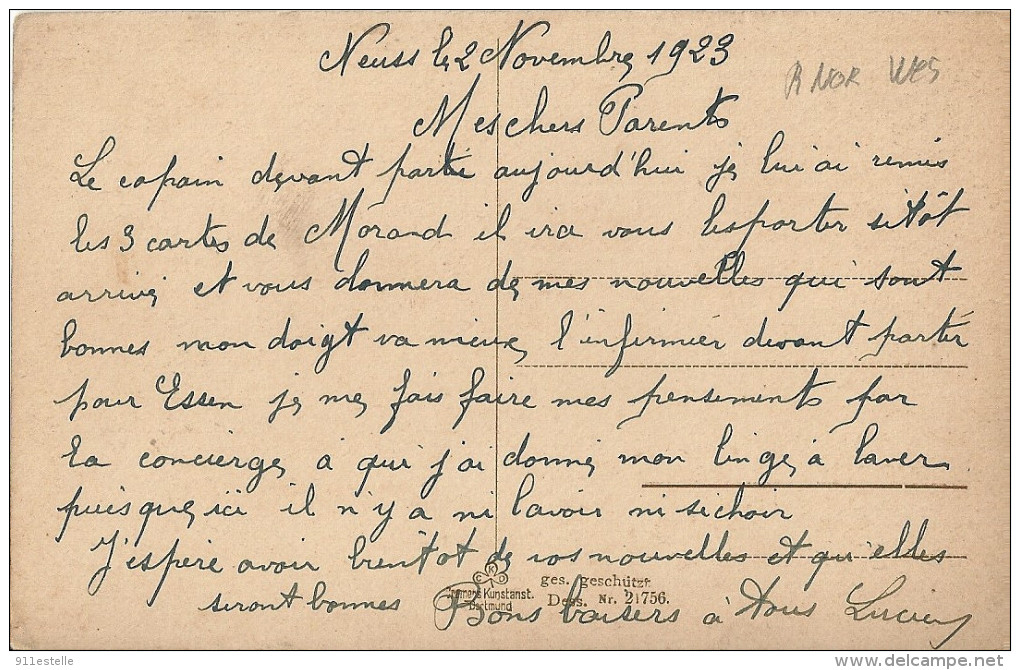 Neuss le 2 Novembre 1923
R NOR WES
Mes chers Parents
Le copain devant partir aujourd'hui je lui ai remis
les 3 cartes de Morand il ira vous les porter sitôt
arrivé et vous donnera de mes nouvelles qui sont
bonnes mon doigt va mieux l'infirmier devant partir
pour Essen je me fais faire mes pensements par
la concierge à qui j'ai donné mon linge à laver
puisque ici il n'y a ni lavoir ni sichoir
J'espère avoir bientot de vos nouvelles et qu'elles
seront bonnes Bons baisers à tous Lucien
CKD
Kunstanst.
Dortmund
ges. geschützt.
Dess. Nr. 21756.
911estelle
delcampe.net